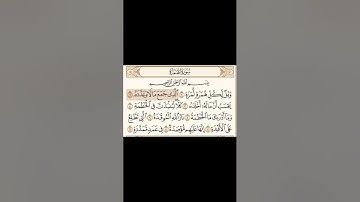 سورة الهمزة
بسم الله الرحمن الرحيم
ويل لكل همزة لمزة ١ الذي جمع مالا وعدده ٢
يحسب أن ماله أخلده ٣ كلا لينبذن في الحطمة ٤
وما أدراك ما الحطمة ٥ نار الله الموقدة ٦ التي تطلع
على الأفئدة ٧ إنها عليهم مؤصدة ٨ في عمد ممددة ٩